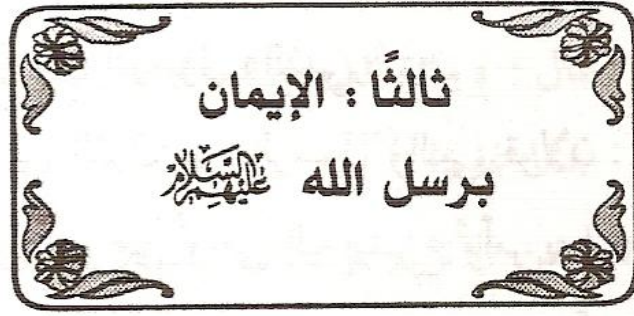 ثالثًا : الإيمان
برسل الله عليهم السلام